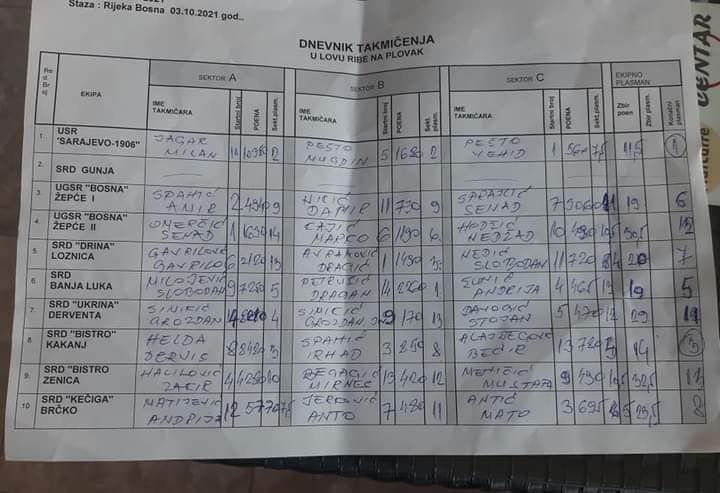 Staza : Rijeka Bosna 03.10.2021 god..
DNEVNIK TAKMIČENJA
U LOVU RIBE NA PLOVAK
Red Broj EKIPA SEKTOR A SEKTOR B SEKTOR C EKIPNO PLASMAN
IME TAKMIČARA Startni broj POENA Sekt.plasm. IME TAKMIČARA Startni broj POENA Sekt.plasm. IME TAKMIČARA Startni broj POENA Sekt.plasm. Zbir poen Zbir plasm. Konačni plasman
1. USR "SARAJEVO-1906" JAGAR MILAN 2 PEŠTO MUGDIN 5 1680 2 PEŠTO VEHID 1 7,5 11,5
2. SRD GUNJA
3. UGSR "BOSNA" ŽEPČE I SPAHIĆ AMIR 2 4940 9 NIKIĆ DAMIR 11 730 9 SARAJLIĆ SENAD 7 19 6
4. UGSR "BOSNA" ŽEPČE II OMERČIĆ SENAD 1 1690 14 CAJIĆ MARCO 6 1190 6 HODŽIĆ NEDŽAD 10 490 10,5 30,5 12
5. SRD "DRINA" LOZNICA GAVRILOVIĆ GAVRILO 6 2120 13 AVRAMOVIĆ DRAGIĆ 1 1490 3 NEDIĆ SLOBODAN 11 720 20 7
6. SRD BANJA LUKA MILOJEVIĆ SLOBODAN 9 7260 5 PETRUŠIĆ DRAGAN 14 2260 1 ANDRIJA 4 465 13 19 5
7. SRD "UKRINA" DERVENTA SIMIKIĆ GROZDAN 4 SIMIKIĆ GROZDAN 9 170 13 STOJAN 5 470 12 29
8. SRD "BISTRO" KAKANJ HELDA DERVIŠ 8 8480 3 SPAHIĆ IRHAD 3 850 8 ALAJBEGOVIĆ BEĆIR 13 780 3 14 3
9. SRD "BISTRO ZENICA HALILOVIĆ ZAĆIR 4 4280 10 BEGAGIĆ MIRNES 13 420 12 MEHIČIĆ MUSTAFA 9 490 10,5 32,5 13
10 SRD "KEČIGA" BRČKO MATIJEVIĆ ANDRIJA 12 5770 7,5 JEROVIĆ ANTO 7 480 11 ANTIĆ MATO 3 695 29,5 8
CENTAR